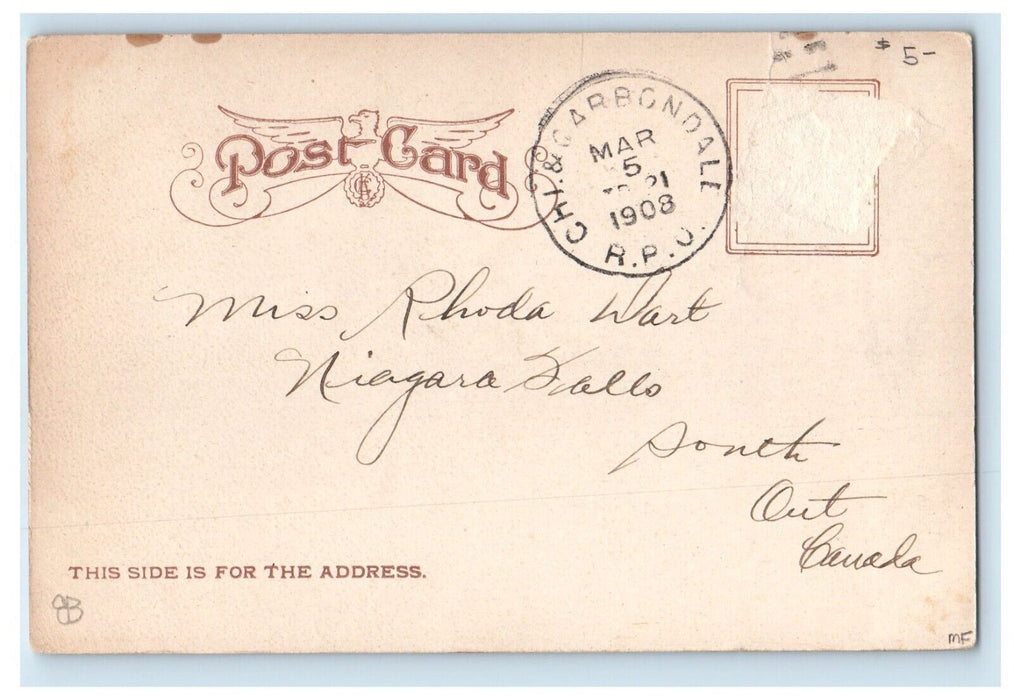 $ 5-
Post Card
CHI. & CARBONDALE
MAR
5
1908
R.P.O.
Miss Rhoda Dart
Niagara Falls
South
Ont
Canada
THIS SIDE IS FOR THE ADDRESS.
MF